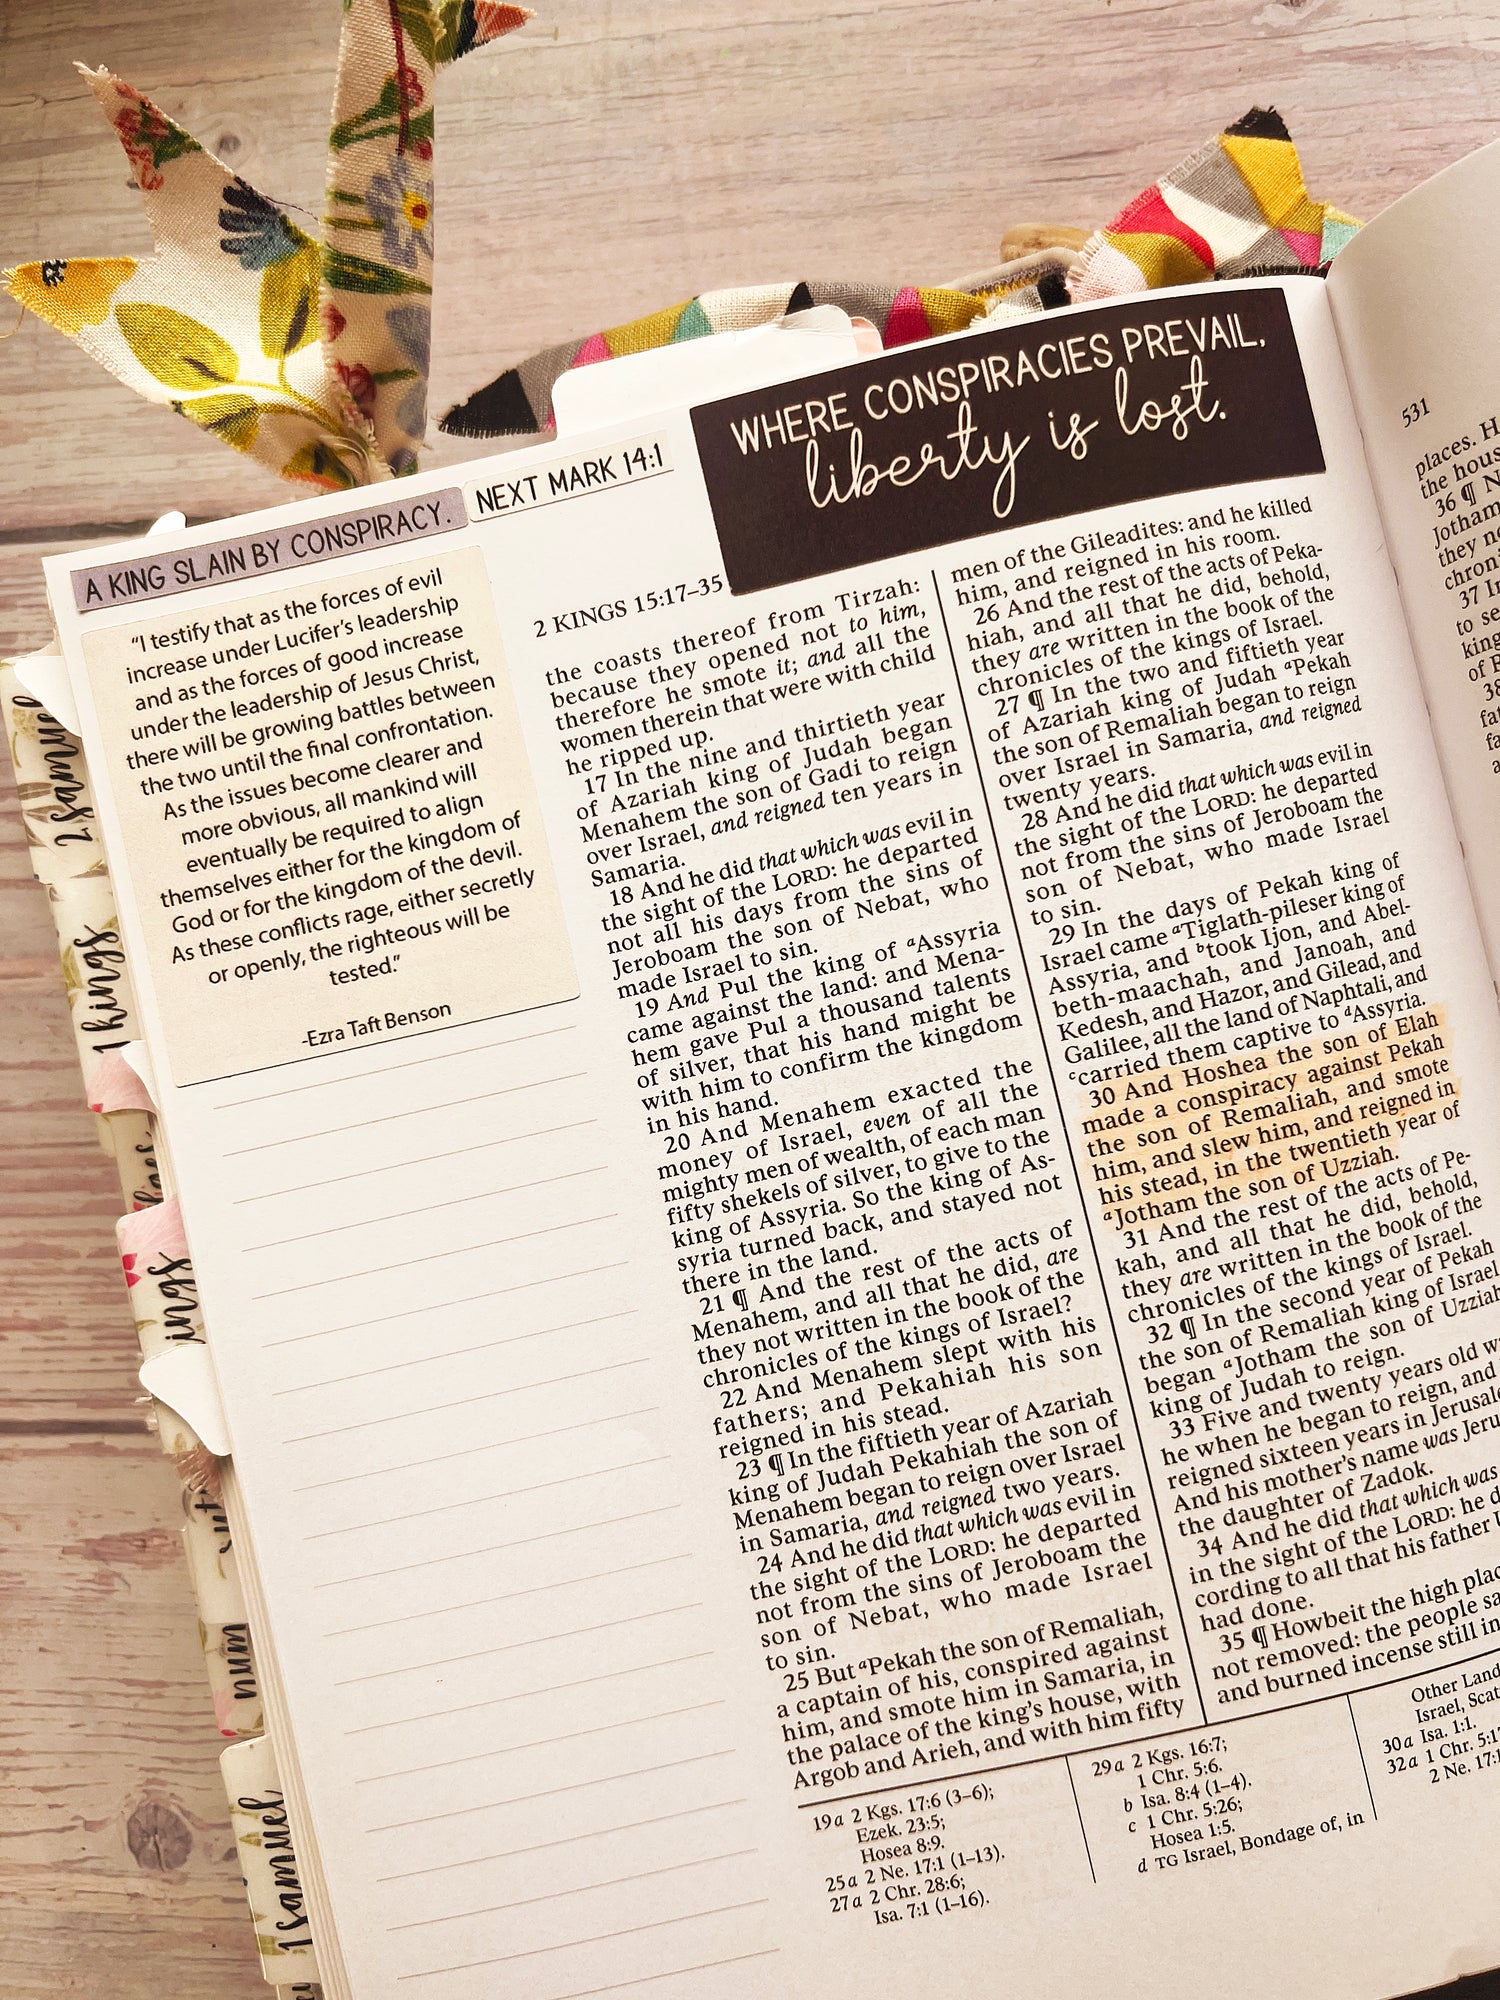 WHERE CONSPIRACIES PREVAIL,
liberty is lost.
A KING SLAIN BY CONSPIRACY.
NEXT MARK 14:1
"I testify that as the forces of evil
increase under Lucifer's leadership
and as the forces of good increase
under the leadership of Jesus Christ,
there will be growing battles between
the two until the final confrontation.
As the issues become clearer and
more obvious, all mankind will
eventually be required to align
themselves either for the kingdom of
God or for the kingdom of the devil.
As these conflicts rage, either secretly
or openly, the righteous will be
tested."
-Ezra Taft Benson
2 Samuel
1 kings
ings
num
1 Samuel
2 KINGS 15:17–35
the coasts thereof from Tirzah:
because they opened not to him,
therefore he smote it; and all the
women therein that were with child
he ripped up.
17 In the nine and thirtieth year
of Azariah king of Judah began
Menahem the son of Gadi to reign
over Israel, and reigned ten years in
Samaria.
18 And he did that which was evil in
the sight of the LORD: he departed
not all his days from the sins of
Jeroboam the son of Nebat, who
made Israel to sin.
19 And Pul the king of aAssyria
came against the land: and Mena-
hem gave Pul a thousand talents
of silver, that his hand might be
with him to confirm the kingdom
in his hand.
20 And Menahem exacted the
money of Israel, even of all the
mighty men of wealth, of each man
fifty shekels of silver, to give to the
king of Assyria. So the king of As-
syria turned back, and stayed not
there in the land.
21 ¶ And the rest of the acts of
Menahem, and all that he did, are
they not written in the book of the
chronicles of the kings of Israel?
22 And Menahem slept with his
fathers; and Pekahiah his son
reigned in his stead.
23 ¶ In the fiftieth year of Azariah
king of Judah Pekahiah the son of
Menahem began to reign over Israel
in Samaria, and reigned two years.
24 And he did that which was evil in
the sight of the LORD: he departed
not from the sins of Jeroboam the
son of Nebat, who made Israel
to sin.
25 But aPekah the son of Remaliah,
a captain of his, conspired against
him, and smote him in Samaria, in
the palace of the king's house, with
Argob and Arieh, and with him fifty
men of the Gileadites: and he killed
him, and reigned in his room.
26 And the rest of the acts of Peka-
hiah, and all that he did, behold,
they are written in the book of the
chronicles of the kings of Israel.
27 ¶ In the two and fiftieth year
of Azariah king of Judah aPekah
the son of Remaliah began to reign
over Israel in Samaria, and reigned
twenty years.
28 And he did that which was evil in
the sight of the LORD: he departed
not from the sins of Jeroboam the
son of Nebat, who made Israel
to sin.
29 In the days of Pekah king of
Israel came aTiglath-pileser king of
Assyria, and btook Ijon, and Abel-
beth-maachah, and Janoah, and
Kedesh, and Hazor, and Gilead, and
Galilee, all the land of Naphtali, and
ccarried them captive to dAssyria.
30 And Hoshea the son of Elah
made a conspiracy against Pekah
the son of Remaliah, and smote
him, and slew him, and reigned in
his stead, in the twentieth year of
aJotham the son of Uzziah.
31 And the rest of the acts of Pe-
kah, and all that he did, behold,
they are written in the book of the
chronicles of the kings of Israel.
32 ¶ In the second year of Pekah
the son of Remaliah king of Israel
began aJotham the son of Uzziah
king of Judah to reign.
33 Five and twenty years old
he when he began to reign, and
reigned sixteen years in
And his mother's name was
the daughter of Zadok.
34 And he did that which was
in the sight of the LORD: he
cording to all that his father
had done.
35 ¶ Howbeit the high
not removed: the people
and burned incense still in
19a 2 Kgs. 17:6 (3–6);
Ezek. 23:5;
Hosea 8:9.
25a 2 Ne. 17:1 (1–13).
27a 2 Chr. 28:6;
Isa. 7:1 (1–16).
29a 2 Kgs. 16:7;
1 Chr. 5:6.
b Isa. 8:4 (1–4).
c 1 Chr. 5:26;
Hosea 1:5.
d TG Israel, Bondage of, in
Other
Israel,
30a Isa. 1:1.
32a 1 Chr.
2 Ne.
531
places.
the
36 ¶
Jotham
they
37
to
king
of
38